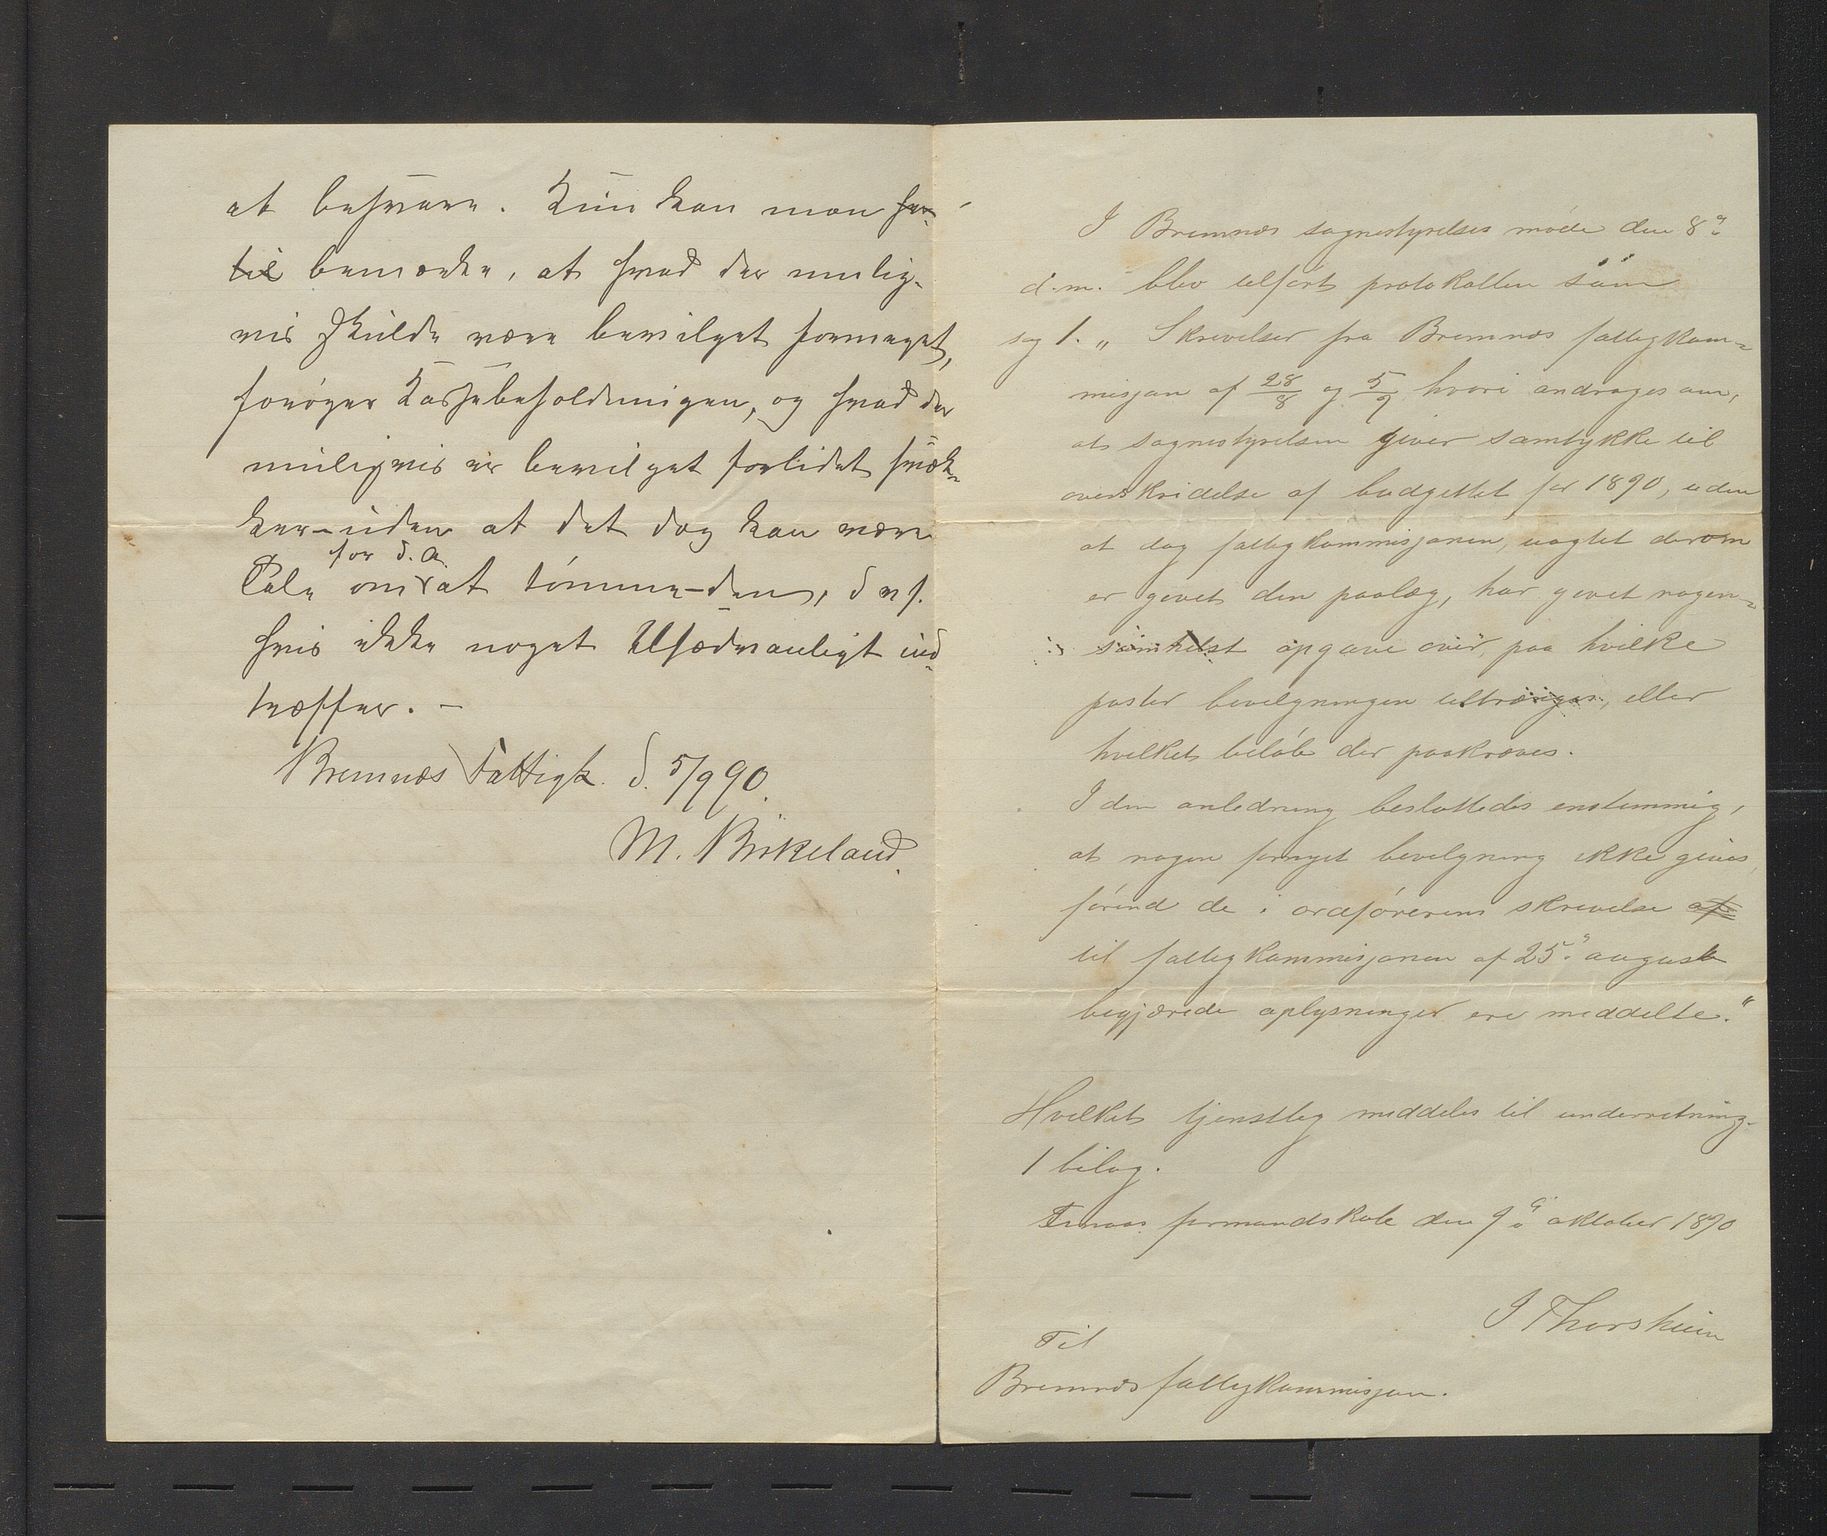 at besvare. Kun kan man her-
til bemærke, at hvad der mulig-
vis skulde være bevilget formeget,
forøger Kassebeholdningen, og hvad der
muligvis er bevilget forlidet svæk-
ker – uden at det dog kan være
for d. A.
Tale om at tømme – den, d. e. s.
hvis ikke noget Usædvanligt ind-
træffer. –
Bremnæs Fattigk. d. 5/9 90.
M. Birkeland.
I Bremnæs sognestyrelses møde den 8de
d.m. blev tilført protokollen som
sag 1. „Skrivelser fra Bremnæs fattigkom-
misjon af 28/8 og 5/9 hvori andrages om,
at sognestyrelsen giver samtykke til
overskridelse af budgettet for 1890, uden
at dog fattigkommisjonen, uagtet derom
er givet den paalæg, har givet nogen-
somhelst opgave over, paa hvilke
poster bevilgningen tiltrænges, eller
hvilket beløb der paakræves.
I den anledning besluttedes enstemmig,
at nogen fornyet bevilgning ikke gives,
førend de i ordførerens skrivelse af
til fattigkommisjonen af 25de august
begjærede oplysninger ere meddelte."
Hvilket tjenstlig meddeles til underretning.
1 bilag.
Finaas formandskab den 9de oktober 1890
J Thorsheim
Til
Bremnæs fattigkommisjon.